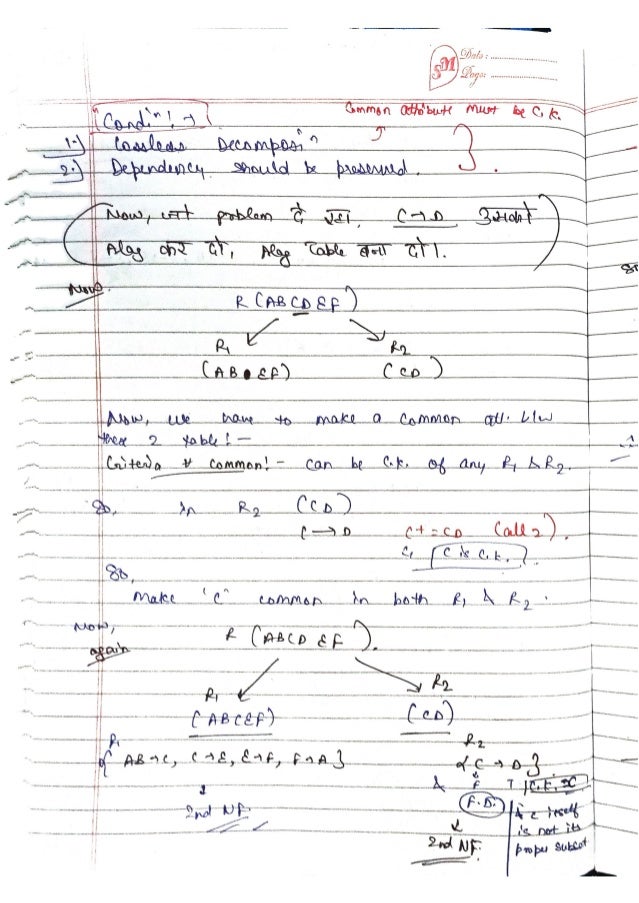 SM Date: ..............
Page: ..............
Condiⁿ! → Common attribute must be C.k.
1.) Lossless Decomposiⁿ
2.) Dependency should be preserved.
Now, जो problem दे रहा, C→D उसको
Alag कर दो, Alag Table बना दो।
Now.
R (ABCDEF)
R1 R2
(AB EF) (CD)
Now, we have to make a common att. b/w
these 2 table! -
Criteria # common! - can be C.k. of any R1 & R2.
So, in R2 (CD)
C → D C+ = CD (all 2).
C is C.k.
So,
Make 'C' common in both R1 & R2.
Now,
again R (ABCDEF).
R1 R2
(ABCEF) (CD)
R1 R2
{ AB→C, C→E, E→F, F→A } { C → D }
2nd NF. F.D.
& C itself
is not its
proper subset
2nd NF.